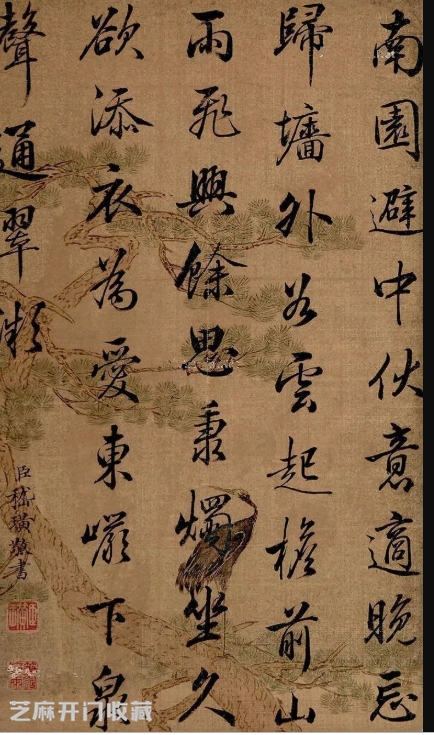 南園避中伏意適晚忘
歸墻外谷雲起檐前山
雨飛興餘思秉燭坐久
欲添衣為愛東巗下泉
聲通翠微
臣嵇璜敬書
芝麻开门收藏